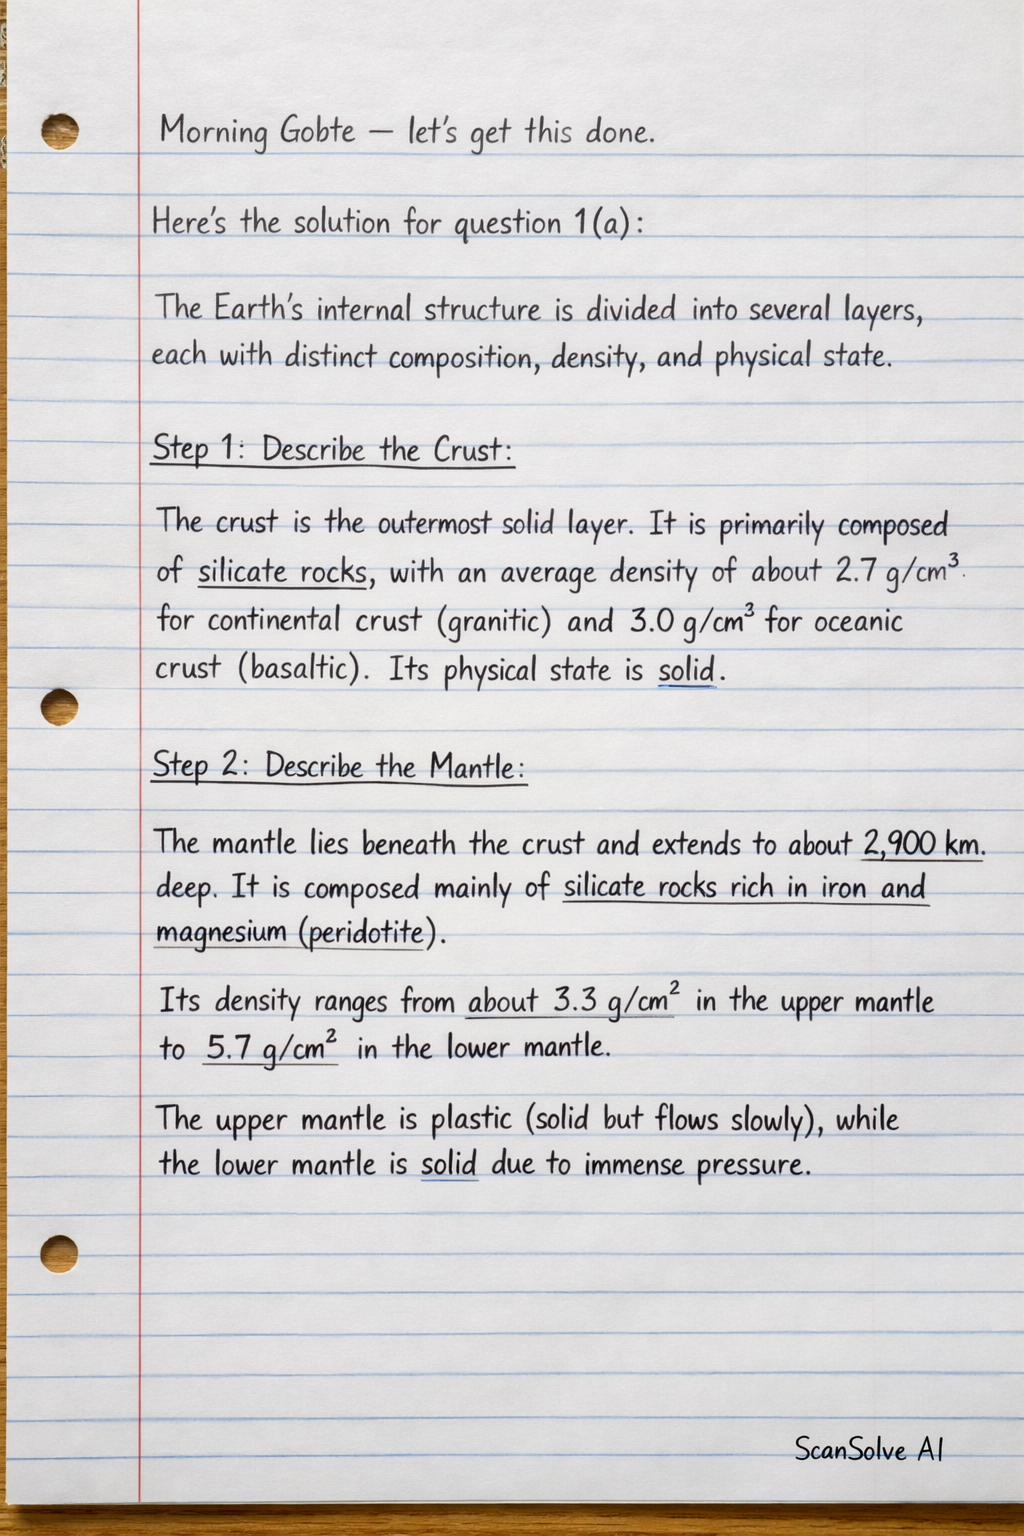 Morning Gobte — let's get this done.
Here's the solution for question 1(a):
The Earth's internal structure is divided into several layers,
each with distinct composition, density, and physical state.
Step 1: Describe the Crust:
The crust is the outermost solid layer. It is primarily composed
of silicate rocks, with an average density of about 2.7 g/cm³.
for continental crust (granitic) and 3.0 g/cm³ for oceanic
crust (basaltic). Its physical state is solid.
Step 2: Describe the Mantle:
The mantle lies beneath the crust and extends to about 2,900 km.
deep. It is composed mainly of silicate rocks rich in iron and
magnesium (peridotite).
Its density ranges from about 3.3 g/cm² in the upper mantle
to 5.7 g/cm² in the lower mantle.
The upper mantle is plastic (solid but flows slowly), while
the lower mantle is solid due to immense pressure.
ScanSolve AI